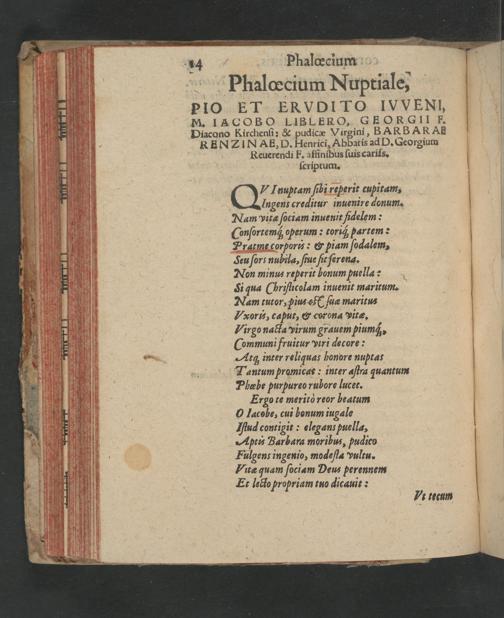 14 Phalœcium
Phalœcium Nuptiale,
PIO ET ERVDITO IVVENI,
M. IACOBO LIBLERO, GEORGII F.
Diacono Kirchensi: & pudicæ Virgini, BARBARAE
RENZINAE, D. Henrici, Abbatis ad D. Georgium
Reuerendi F. affinibus suis cariss.
scriptum.
QVI nuptam sibi reperit cupitam,
Ingens creditur inuenire donum.
Nam vitæ sociam inuenit fidelem:
Consortemq́; operum: toriq́; partem:
Partem corporis: & piam sodalem,
Seu sors nubila, siue sit serena.
Non minus reperit bonum puella:
Si qua Christicolam inuenit maritum.
Nam tutor, pius est suæ maritus
Vxoris, caput, & corona vitæ.
Virgo nacta virum grauem piumq́;,
Communi fruitur viri decore:
Atq; inter reliquas honore nuptas
Tantum promicat: inter astra quantum
Phœbe purpureo rubore lucet.
Ergo te meritò reor beatum
O Iacobe, cui bonum iugale
Istud contigit: elegans puella,
Aptis Barbara moribus, pudico
Fulgens ingenio, modesta vultu.
Vitæ quam sociam Deus perennem
Et lecto propriam tuo dicauit:
Vt tecum